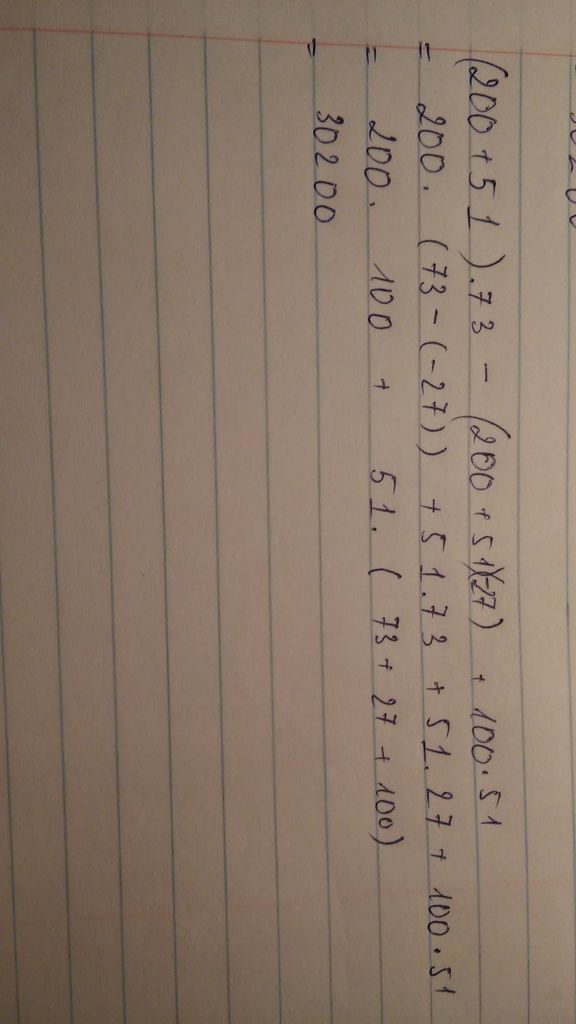 (200+51).73 - (200+51)(-27) + 100.51
= 200. (73-(-27)) + 51.73 + 51.27 + 100.51
= 200. 100 + 51. (73+27+100)
= 30200